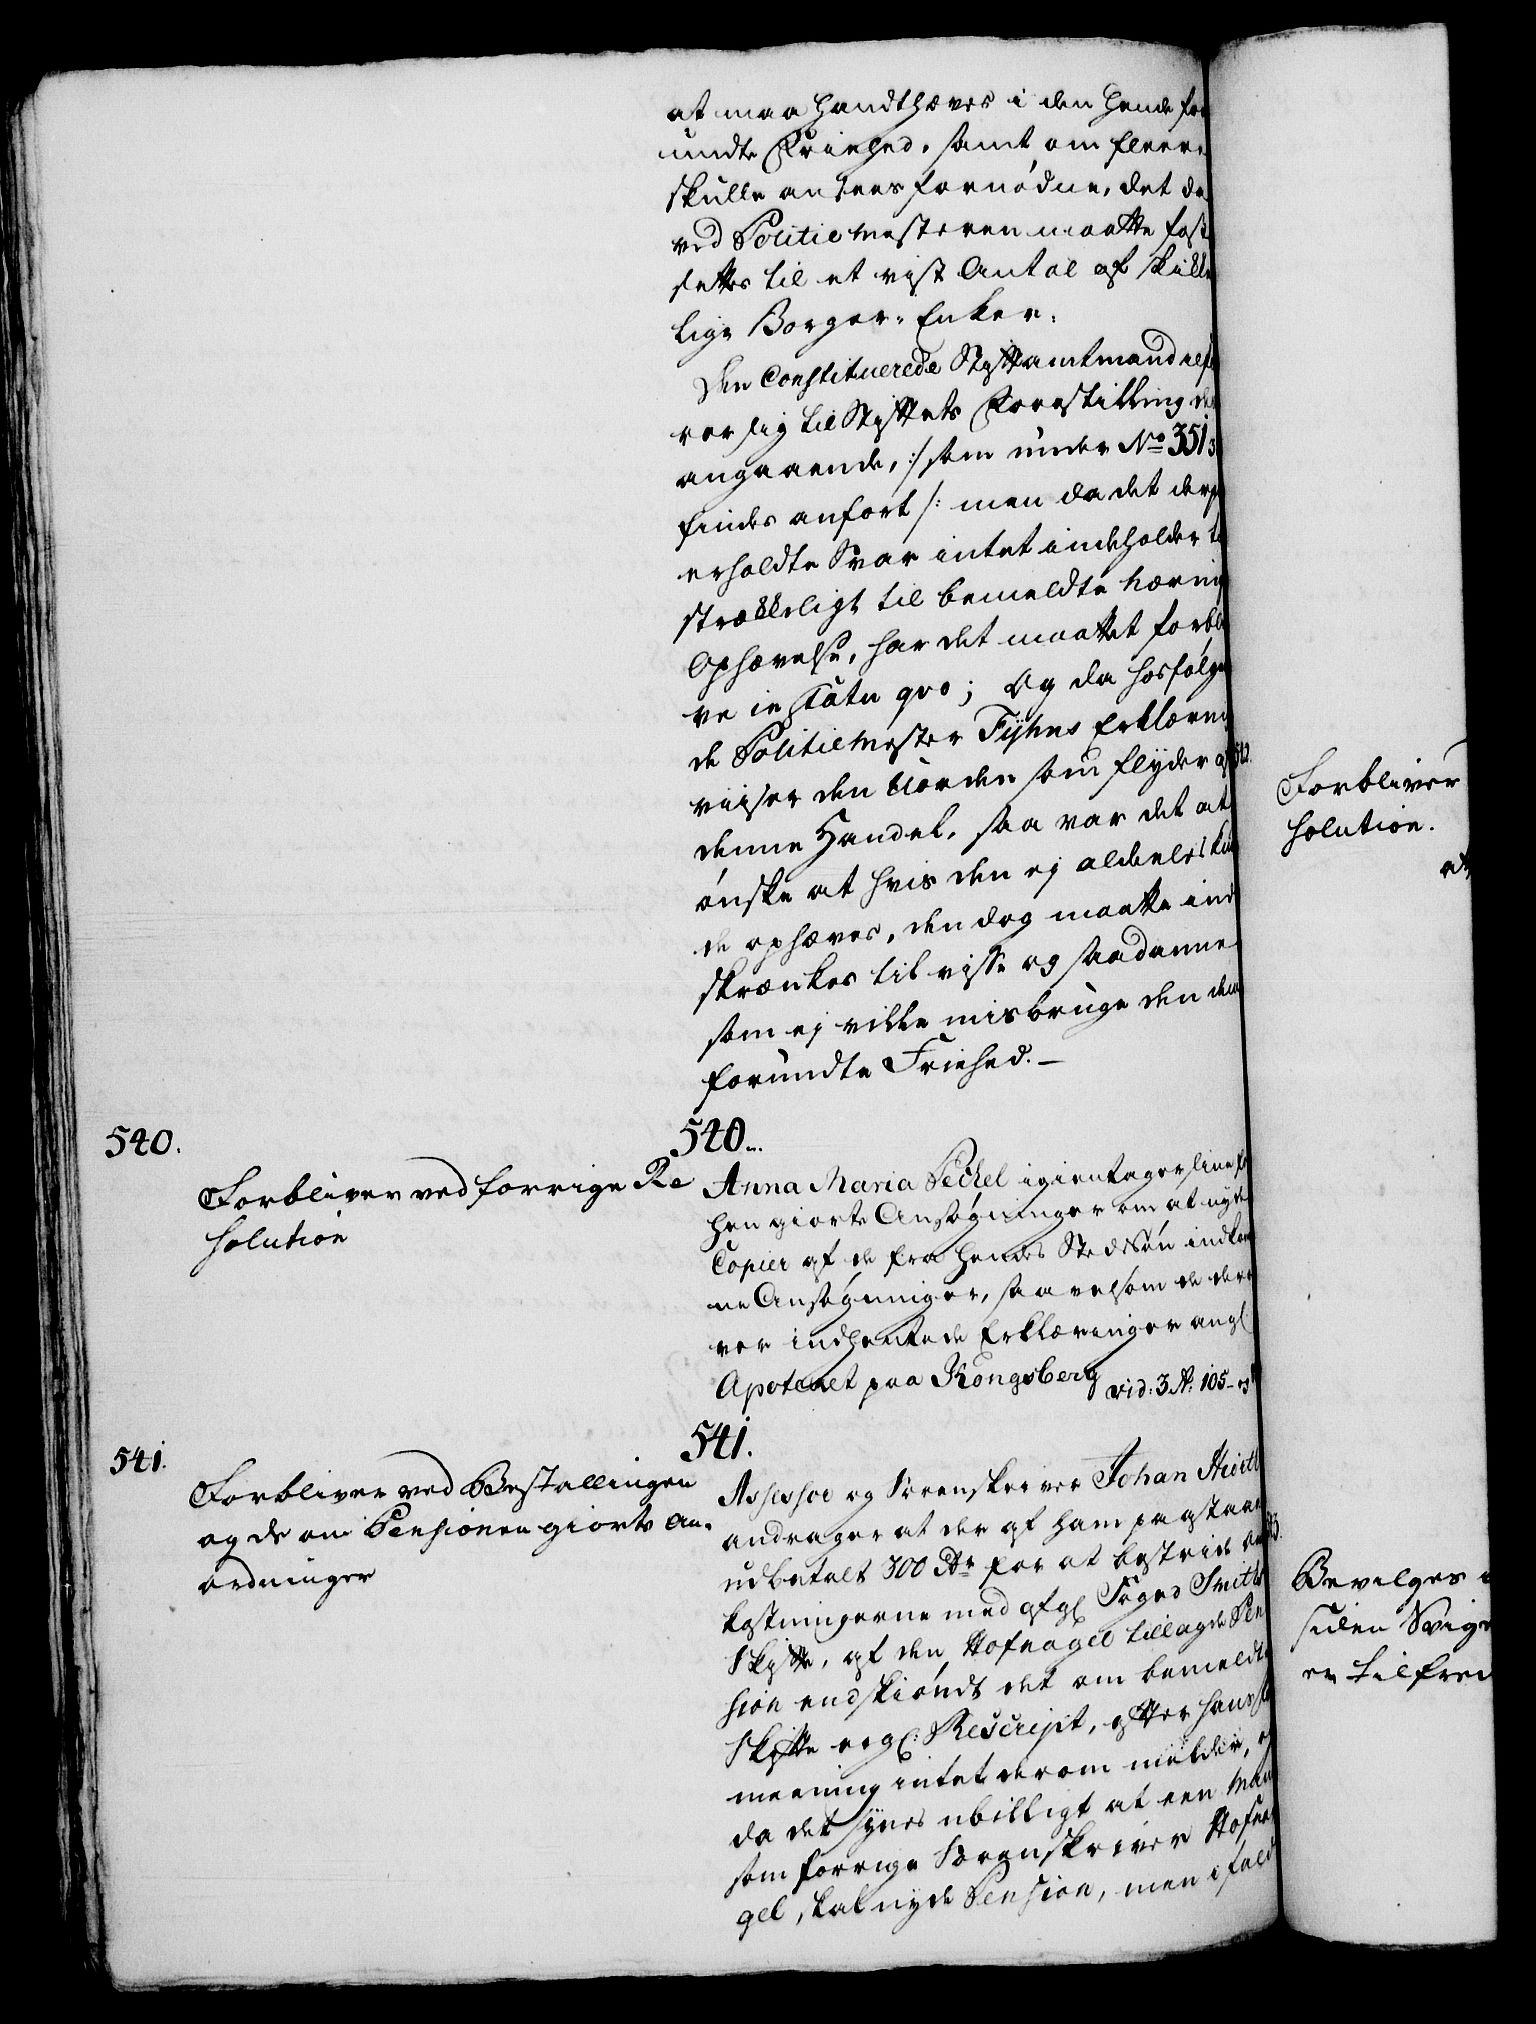 at maa Handthæves i den hende for
undte Friehed, samt om fleere
skulle ansees fornødne, det da
ved Politie Mesteren maatte fast
settes til et vist Antal af skikke
lige Borger-Enker.
Den Constituerede Stiftamtmand refe
rer sig til Stiftets Forestilling der
angaaende, :/ som under No 351
findes anfort /: men da det derpaa
erholdte Svar intet indeholder til
strækkeligt til bemeldte Nærings
Ophævelse, har det maattet forbli
ve in statu qvo; Og da hosfølgen
de Politiemester Fyhns Erklæring
viiser den Uorden som flyder af
denne Handel, saa var det at
ønske at hvis den ej aldeeles kun
de ophæves, den dog maatte ind
skrænkes til visse og saadanne
som ej ville misbruge den dem
forundte Friehed. –
540.
Forbliver ved forrige Re
solution
540.
Anna Maria Peckel igientager sine for
hen giorte Ansøgninger om at nyde
Copier af de fra hendes Stedsøn indkom
ne Ansøgninger, saavelsom de der
ver indhentede Erklæringer angl.
Apoteket paa Kongsberg vid: 3 A: 105 – og
541.
Forbliver ved Bestallingen
og de om Pensionen giorte An-
ordninger
541.
Assessor og Sorenskriver Johan Hiorth
andrager at der af ham paastaaes
udbetalt 300 Rdr for at bestride om
kostningerne med afg. Foged Smiths
Skifte, af den Hofnagel tillagde Pen
sion endskiøndt det om bemeldte
Skifte erg: Rescript, efter hans for
meening intet derom melder, og
da det synes ubilligt at een Mand
som forrige Sorenskriver Hofna
gel, skal nyde Pension, men ifald
542.
Forbliver
solution.
at
543.
Bevilges
siden Svige
er tilfred